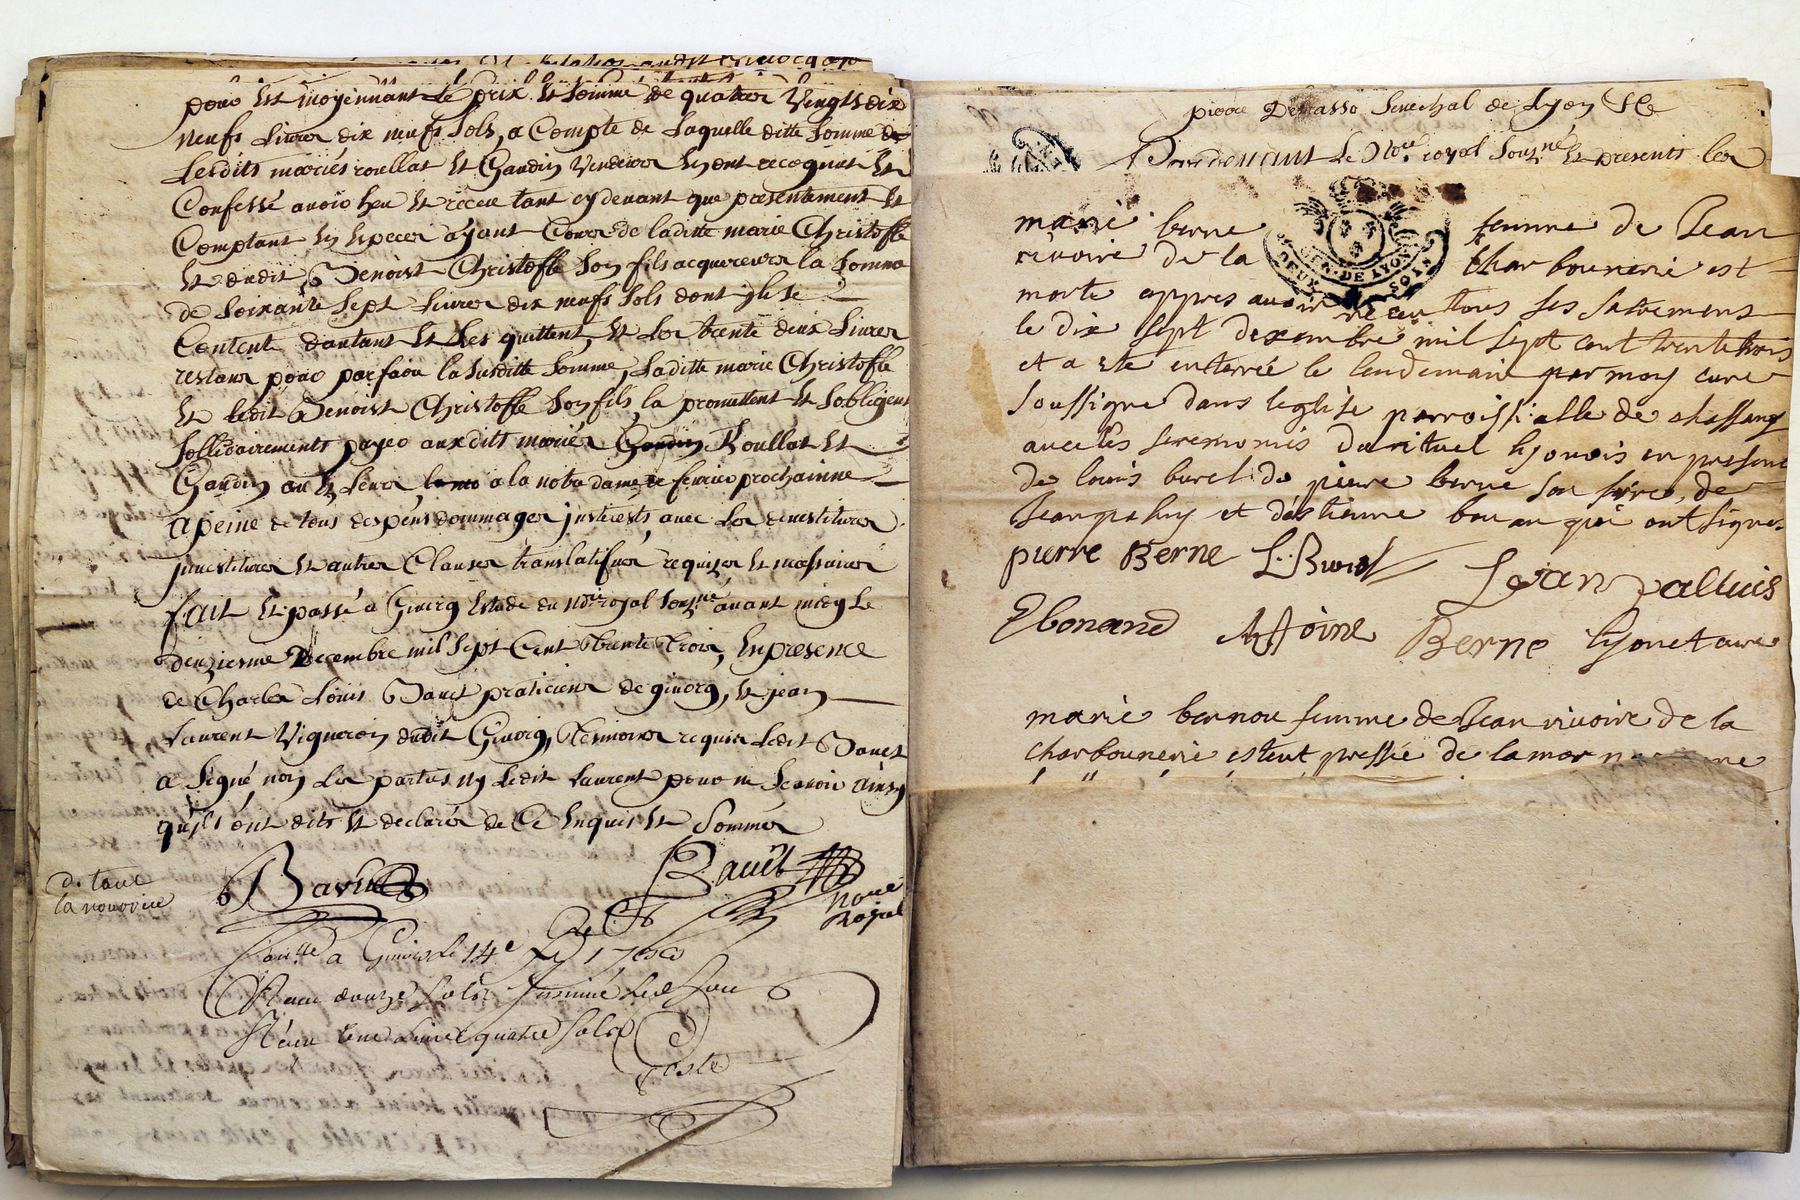 pour Et moyennant le prix Et somme de quatre vingts dix
neufs Livres dix neufs sols, a Compte de Laquelle ditte somme de
Lesdits mariés roullat Et Gaudin Vendeurs En ont recognut Et
Confessé avoir heu Et receu tant cy devant que presentement Et
Comptant En Especes ayant Cours de laditte marie Christofle
Et dudit Benoist Christofle son fils acquereurs la somme
de soixante sept livres dix neufs sols dont ils se
Content dautant Et Les quittent, Et Les trente deux Livres
restans pour parfaire la susditte somme, Laditte marie Christofle
Et ledit Benoist Christofle son fils la promettent Et sobligent
sollidairements payer auxdits mariés Roullat Et
Gaudin ou Es leurs a la notre dame de fevrier prochainne
a peine de tous despens dommages interests, avec Les devestitures
investitures Et autres Clauses translatifves requises Et necessaires
fait Et passé a Givors Estude du Nore royal sousné avant midy Le
deuziesme Decembre mil sept Cent Trente Trois, En presence
de Charles Louis Bauet praticiens de givors, Et jean
Laurent Vigneron dudit Givors, Tesmoins requis Ledit Bauet
a signé, non Les parties ny Ledit Laurent pour ne scavoir ainsy
quils ont dits Et declarés de Ce Enquis Et sommés
Bauet
Nore
Royal
Conlle a Givors le 14e 
Receu douze sols
Receu une livre quatre sols
Coste
pierre Dervasso senechal de Lyon
Pardevant Le Nore royal sousné Et presents les
GEN. DE LYON
marie berne femme de Jean
rivoire de la Charbounerie est
morte appres avoir receu tous ses sacremens
le dix sept dexembre mil sept cent trente trois
et a ete enterrée le lendemain par moy curé
soussigné dans leglise parroissialle de chassang
avec les seremonis du rituel lyonois en presence
de louis burel de pierre berne son frere, de
Jean paluy et destienne bonan qui ont signés
pierre Berne L. Burel Jean palluis
Ebonand Antoine Berne
marie bernou femme de Jean rivoire de la
charbounerie estent pressée de la mor